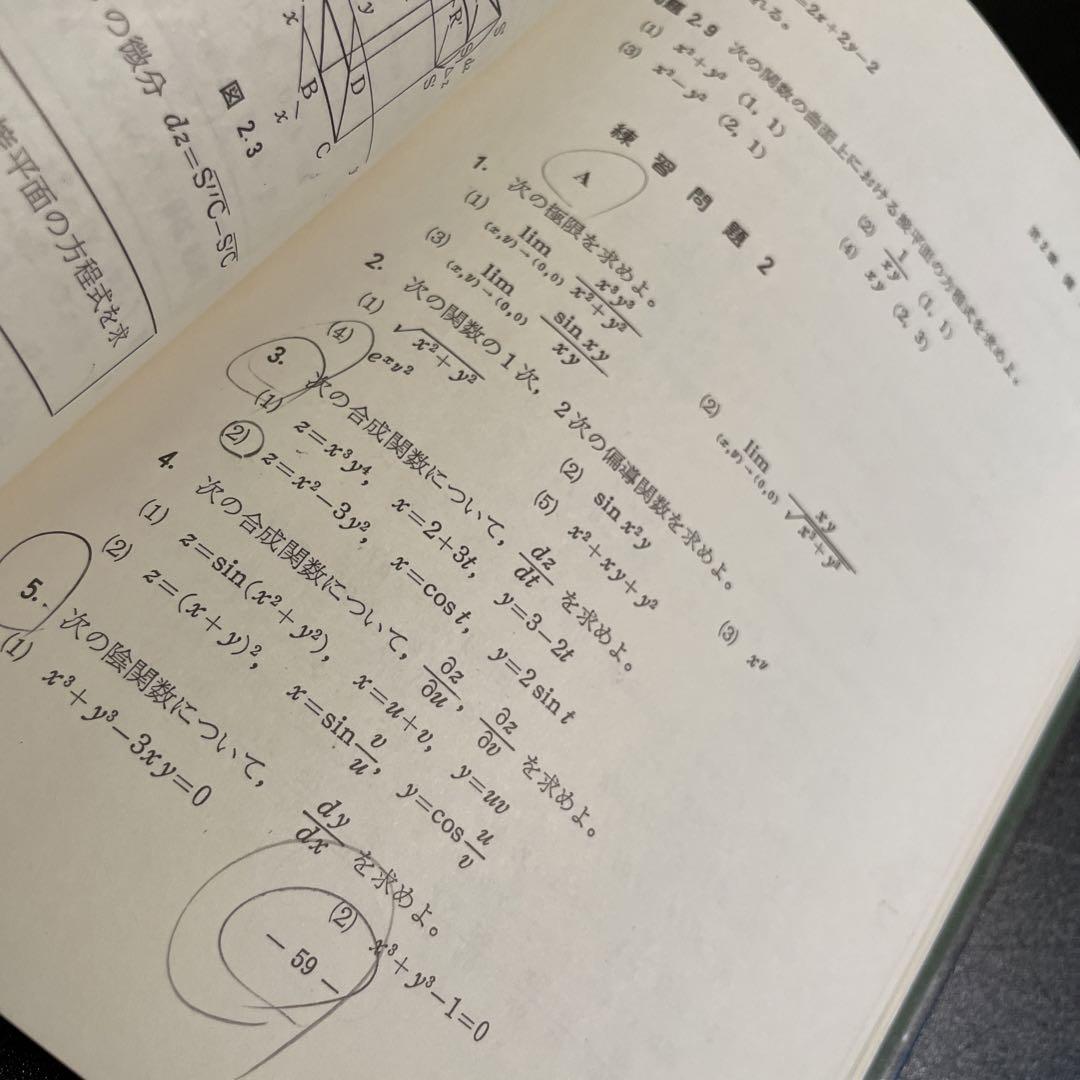 の微分 dz=S''C−S'C
平面の方程式を求
図 2.3
x
B
D
C
y
=2x+2y−2
れる。
題 2.9 次の関数の曲面上における接平面の方程式を求めよ。
(1) x²+y² (1, 1) (2) 1/xy (1, 1)
(3) x²−y² (2, 1) (4) xy (2, 3)
練習問題 2
A
1. 次の極限を求めよ。
(1) lim (x,y)→(0,0) x³y³/(x²+y²) (2) lim (x,y)→(0,0) xy/√(x²+y²)
(3) lim (x,y)→(0,0) sin xy/xy
2. 次の関数の1次, 2次の偏導関数を求めよ。
(1) √(x²+y²) (2) sin x²y (3) xʸ
(4) e^(xy²) (5) x²+xy+y²
3. 次の合成関数について, dz/dt を求めよ。
(1) z=x³y⁴, x=2+3t, y=3−2t
(2) z=x²−3y², x=cos t, y=2 sin t
4. 次の合成関数について, ∂z/∂u, ∂z/∂v を求めよ。
(1) z=sin(x²+y²), x=u+v, y=uv
(2) z=(x+y)², x=sin v/u, y=cos u/v
5. 次の陰関数について, dy/dx を求めよ。
(1) x³+y³−3xy=0 (2) x³+y³−1=0
— 59 —